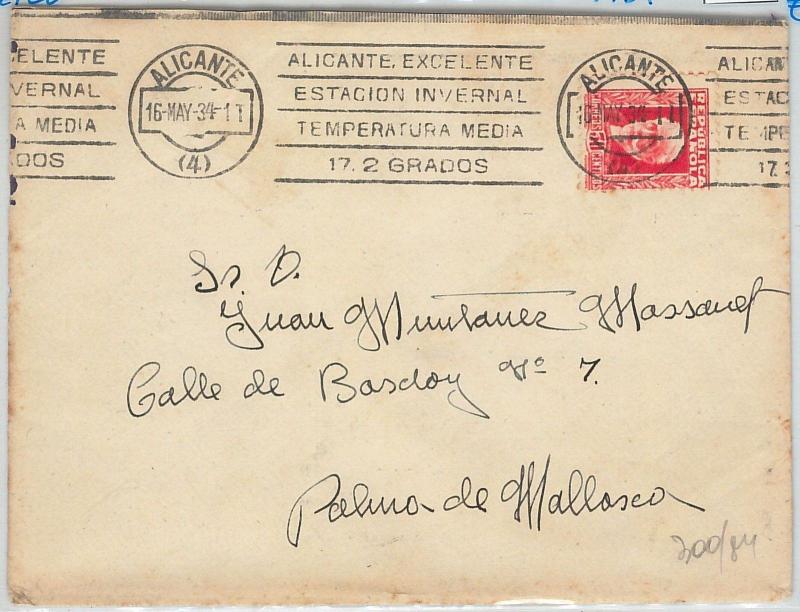 ELENTE
VERNAL
A MEDIA
DOS
ALICANTE
16-MAY-34-1T
(4)
ALICANTE, EXCELENTE
ESTACION INVERNAL
TEMPERATURA MEDIA
17.2 GRADOS
ALICANTE
REPUBLICA
ESPAÑOLA
ALICAN
ESTAC
TEMPE
17.
Sr. D.
Juan Muntaner Massanet
Calle de Bosdoy Nº 7.
Palma de Mallorca
300/84